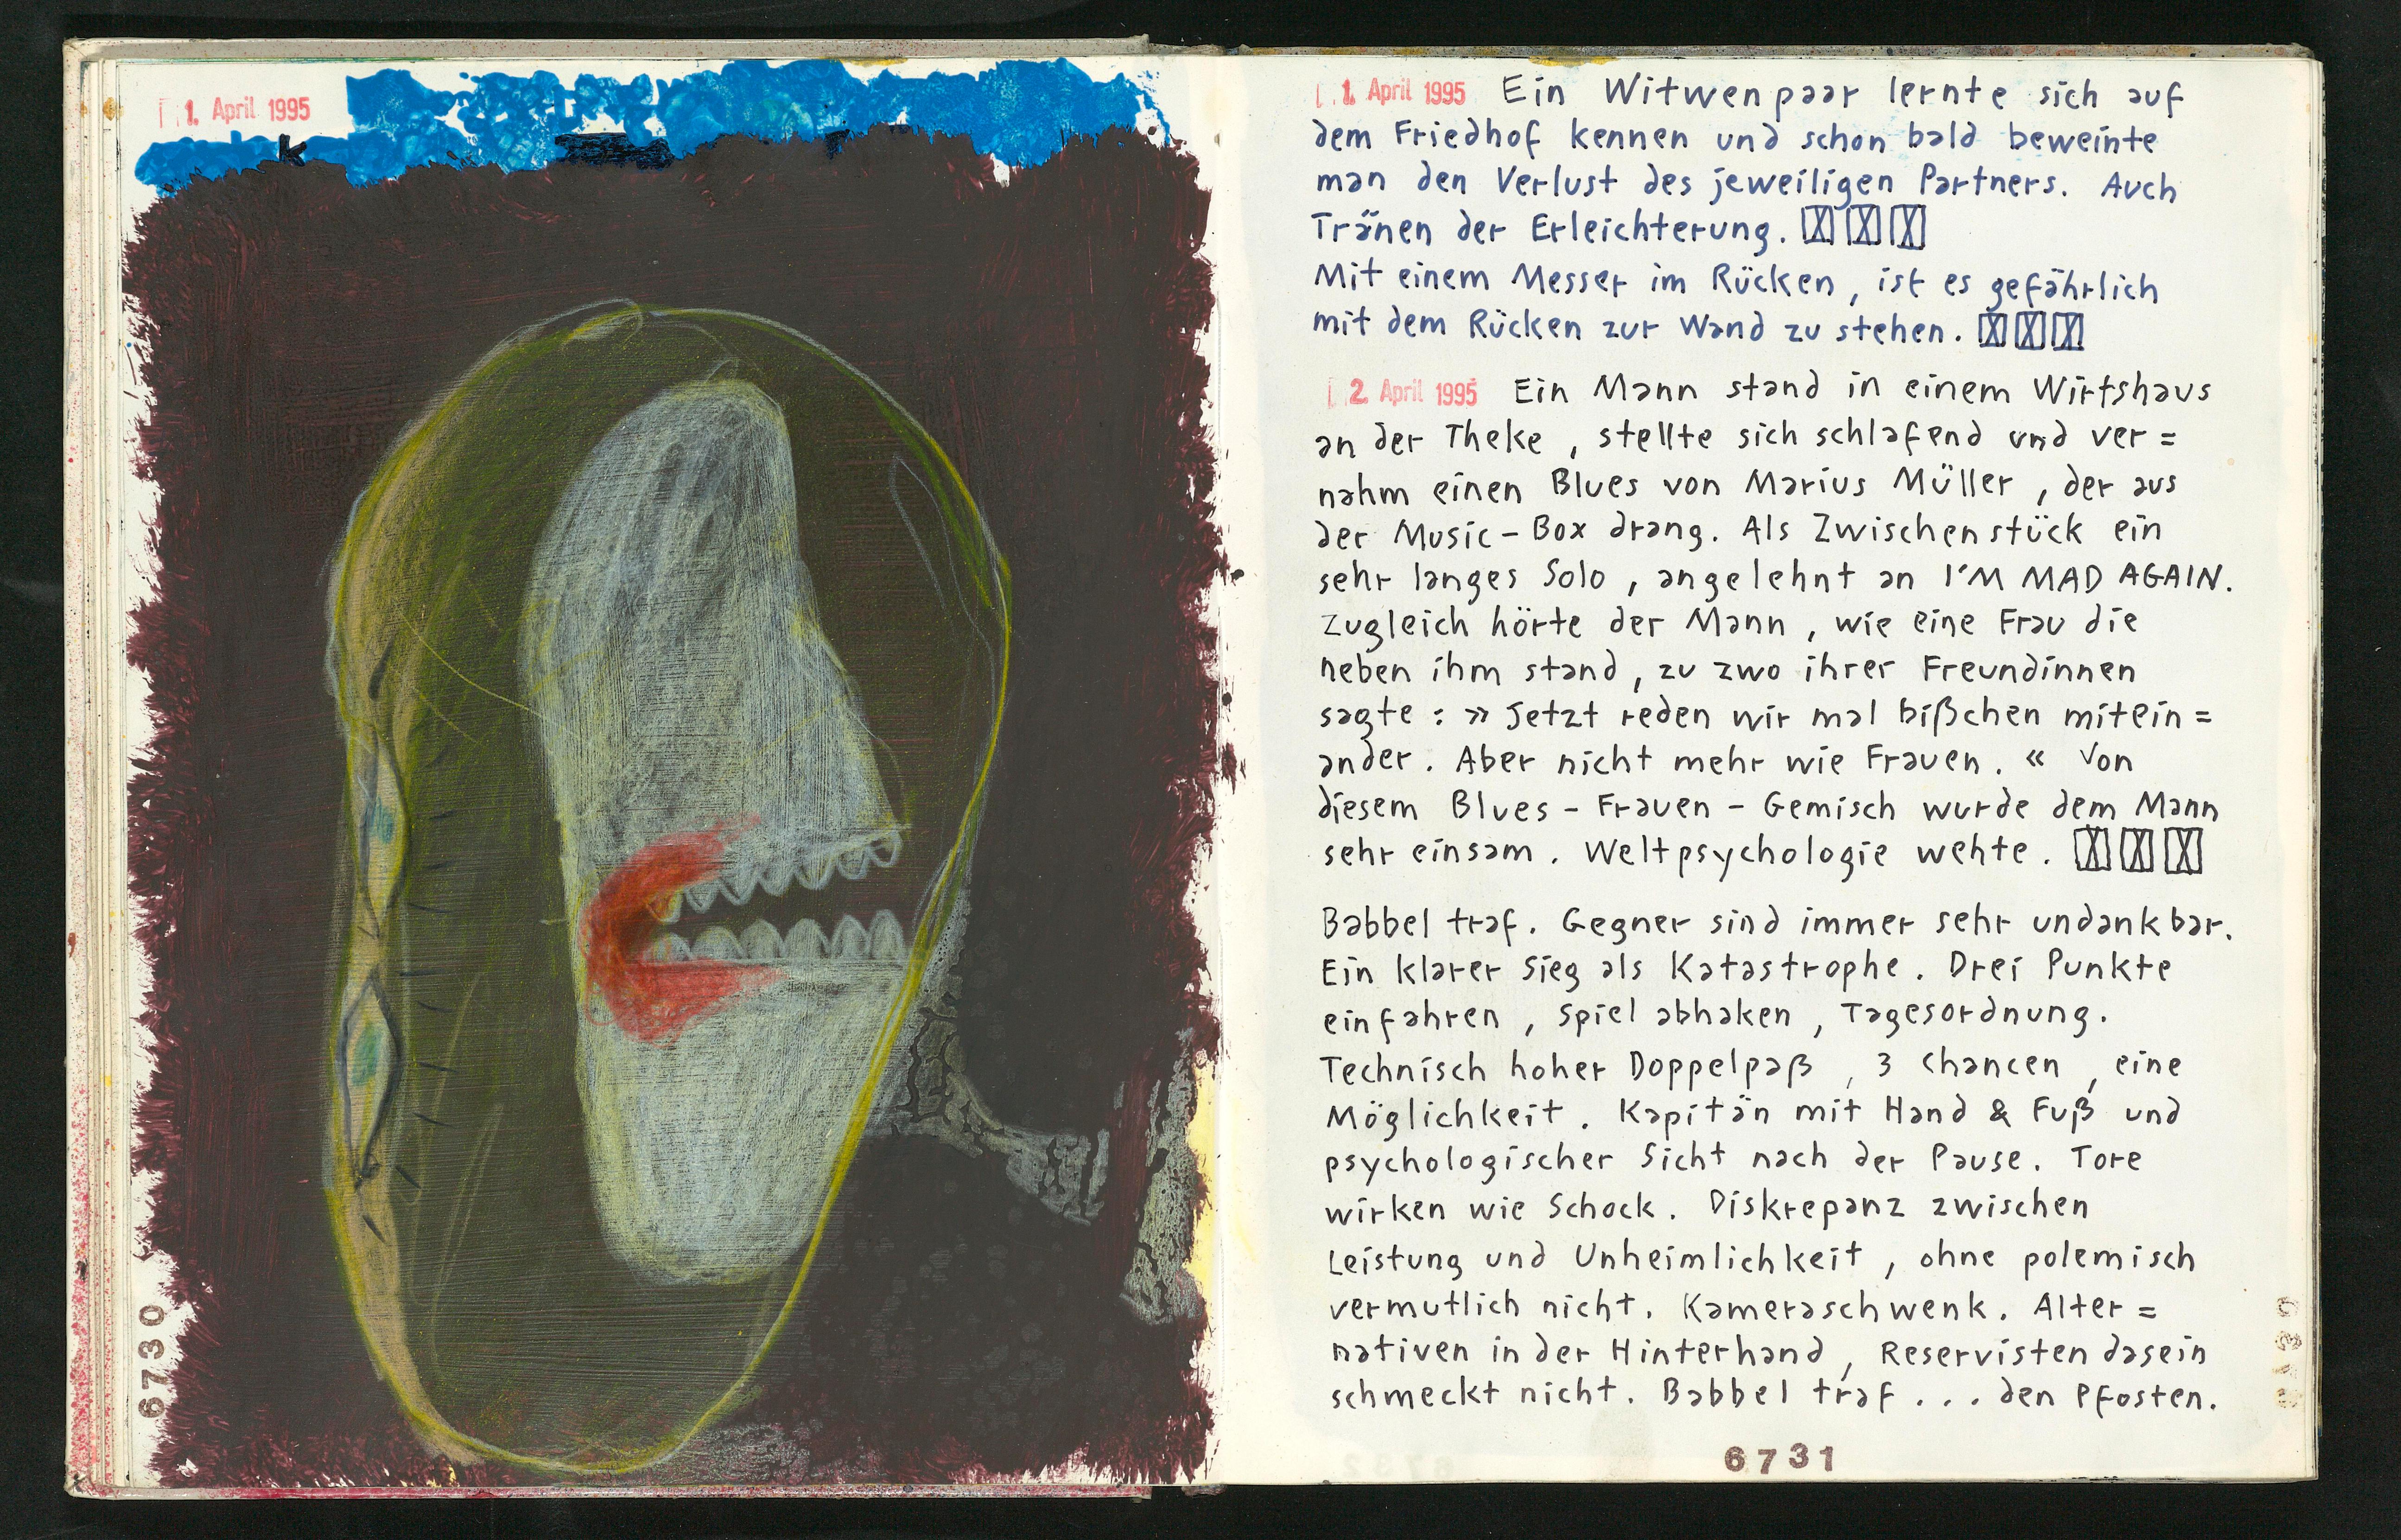 1. April 1995
k
6730
1. April 1995 Ein Witwenpaar lernte sich auf
dem Friedhof kennen und schon bald beweinte
man den Verlust des jeweiligen Partners. Auch
Tränen der Erleichterung.
Mit einem Messer im Rücken, ist es gefährlich
mit dem Rücken zur Wand zu stehen.
2. April 1995 Ein Mann stand in einem Wirtshaus
an der Theke, stellte sich schlafend und ver=
nahm einen Blues von Marius Müller, der aus
der Music-Box drang. Als Zwischenstück ein
sehr langes Solo, angelehnt an I'M MAD AGAIN.
Zugleich hörte der Mann, wie eine Frau die
neben ihm stand, zu zwo ihrer Freundinnen
sagte: »Jetzt reden wir mal bißchen mitein=
ander. Aber nicht mehr wie Frauen.« Von
diesem Blues-Frauen-Gemisch wurde dem Mann
sehr einsam. Weltpsychologie wehte.
Babbel traf. Gegner sind immer sehr undankbar.
Ein klarer Sieg als Katastrophe. Drei Punkte
einfahren, Spiel abhaken, Tagesordnung.
Technisch hoher Doppelpaß, 3 Chancen, eine
Möglichkeit. Kapitän mit Hand & Fuß und
psychologischer Sicht nach der Pause. Tore
wirken wie Schock. Diskrepanz zwischen
Leistung und Unheimlichkeit, ohne polemisch
vermutlich nicht. Kameraschwenk. Alter=
nativen in der Hinterhand, Reservistendasein
schmeckt nicht. Babbel traf... den Pfosten.
6731